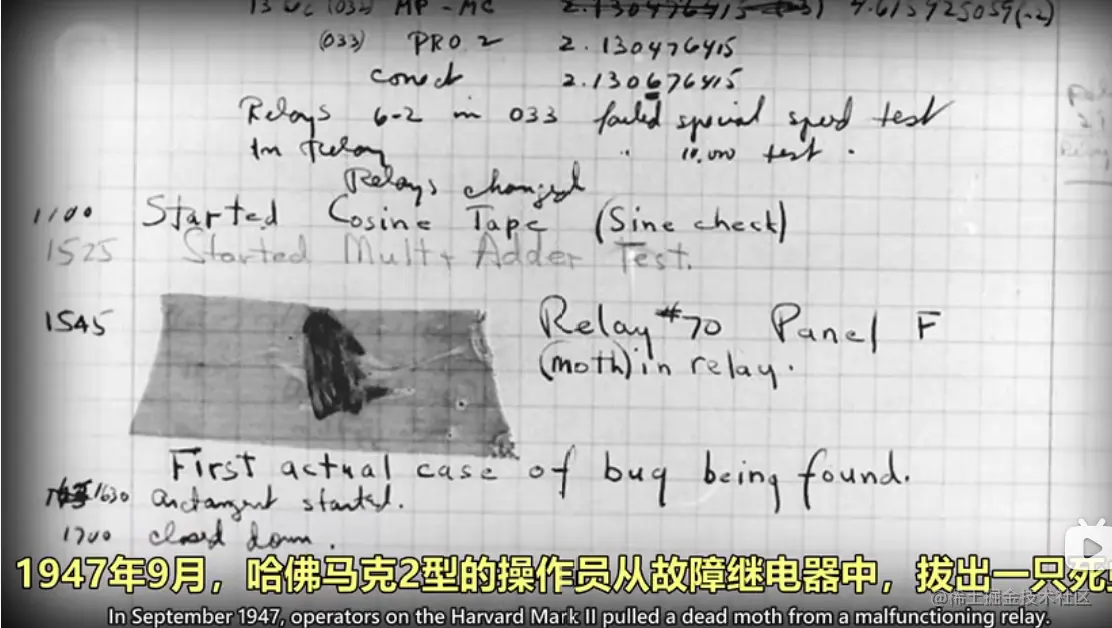 13 UC (032) MP - MC 2.130476415 (-3) 4.615925059(-2)
(033) PRO 2 2.130476415
conect 2.130676415
Relays 6-2 in 033 failed special speed test
In Relay " 10,000 test .
Relays changed
1100 Started Cosine Tape (Sine check)
1525 Started Mult + Adder Test.
1545 Relay #70 Panel F
(moth) in relay.
First actual case of bug being found.
1630 arctangent started.
1700 closed down .
1947年9月，哈佛马克2型的操作员从故障继电器中，拔出一只死
In September 1947, operators on the Harvard Mark II pulled a dead moth from a malfunctioning relay.
@稀土掘金技术社区